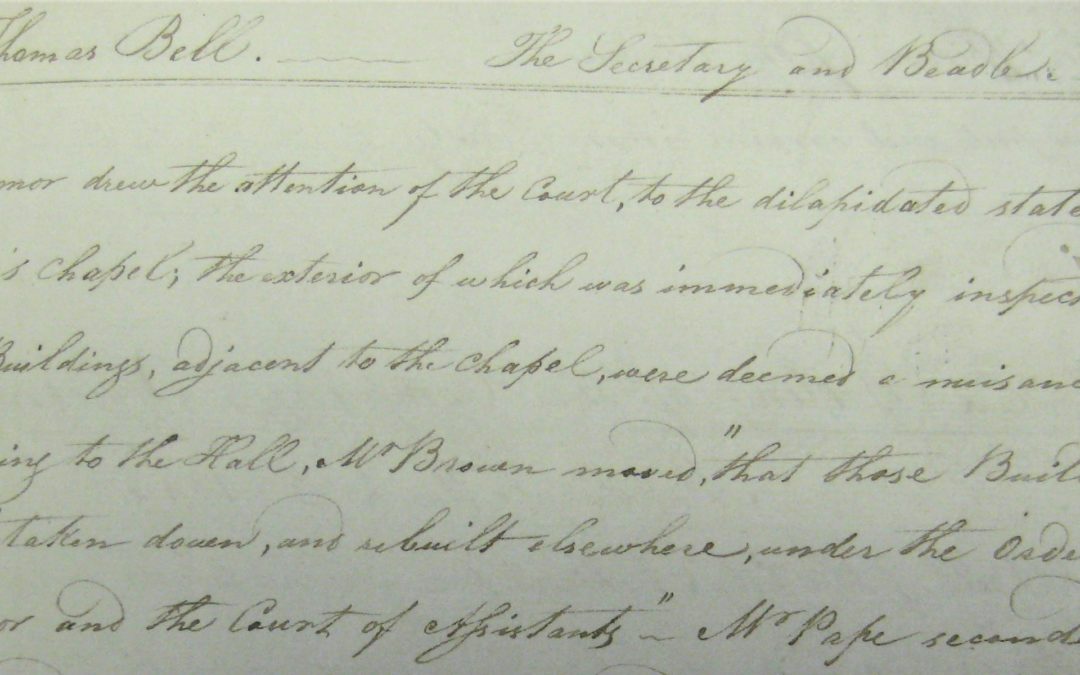 Thomas Bell. The Secretary and Beadle.
mor drew the attention of the Court, to the dilapidated state
's Chapel; the exterior of which was immediately inspec
Buildings, adjacent to the Chapel, were deemed a nuisanc
ing to the Hall, Mr Brown moved, "that those Buil
taken down, and rebuilt elsewhere, under the Orde
or and the Court of Assistants" - Mr Pape second